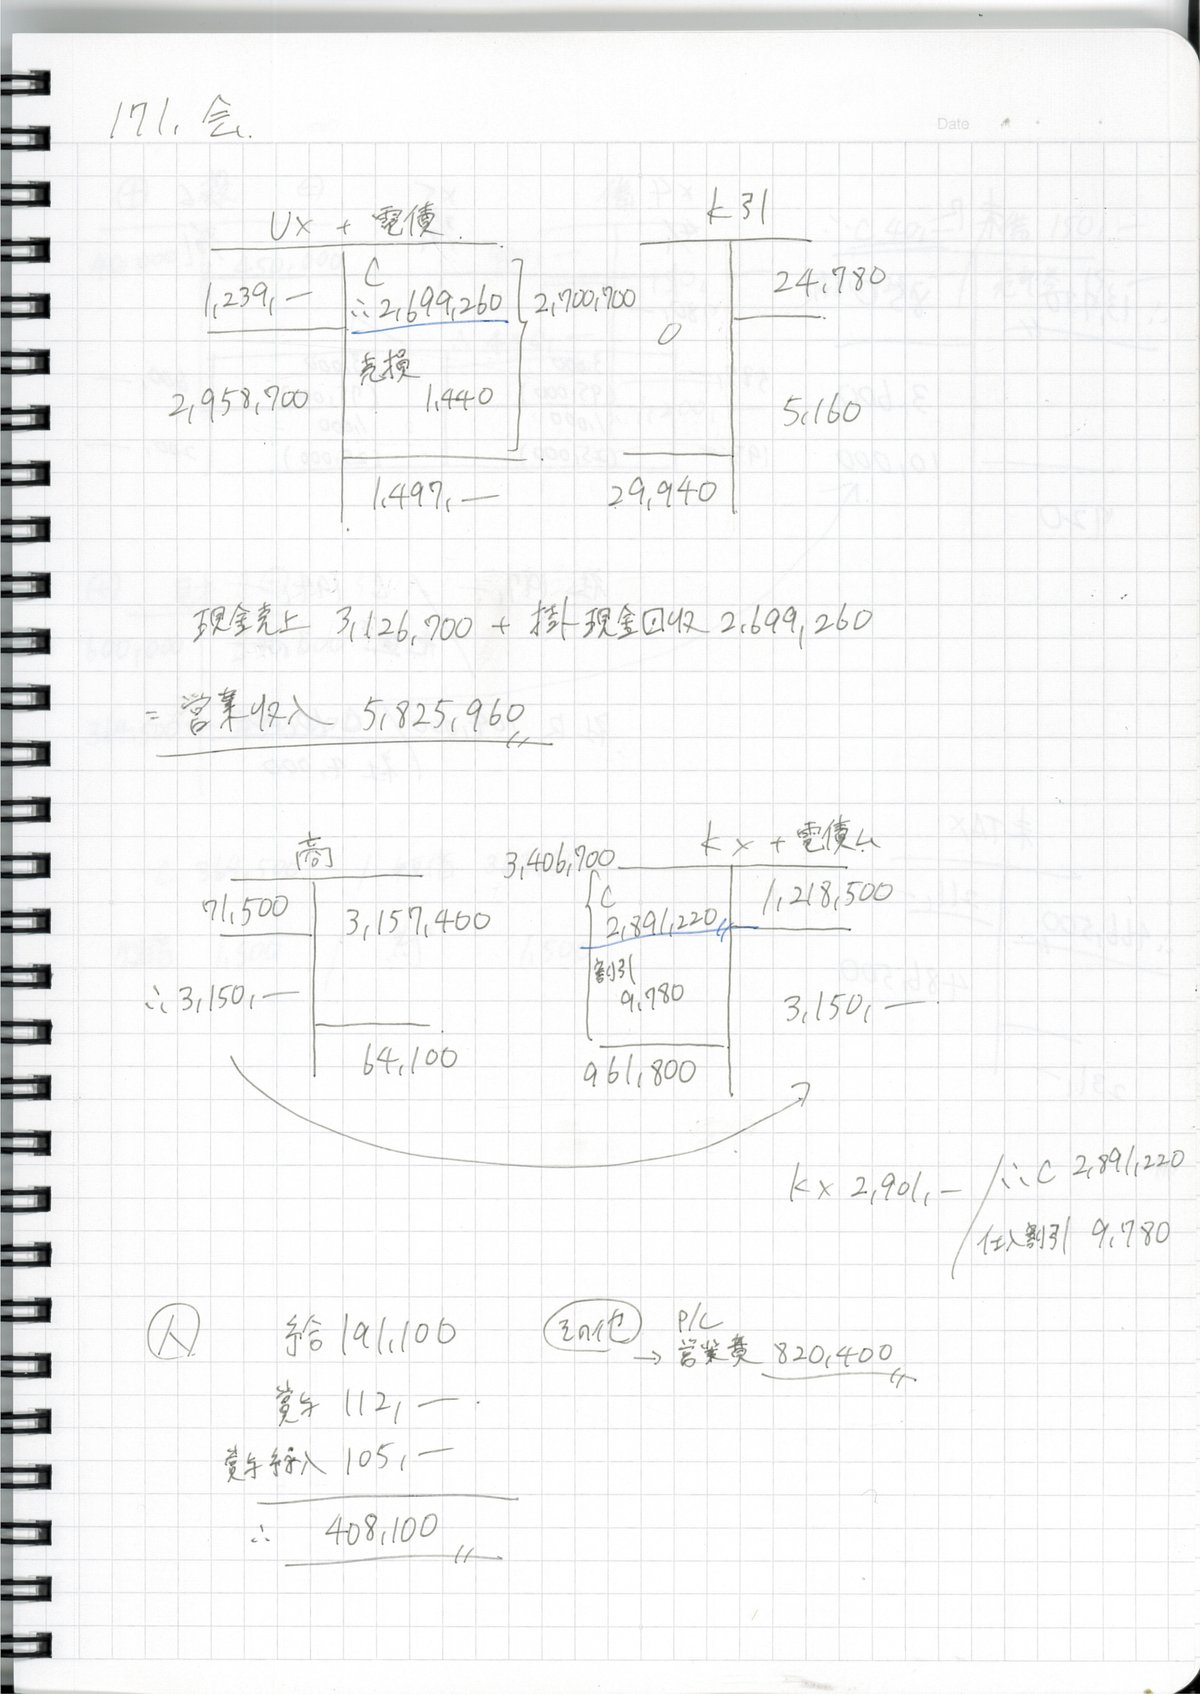 171. 会
Date
UX + 電債
1,239,—
C
∴2,699,260
2,700,700
売損
1,440
2,958,700
1,497,—
K引
24,780
0
5,160
29,940
現金売上 3,126,700 + 掛現金回収 2,699,260
= 営業収入 5,825,960
商
71,500
3,157,400
∴3,150,—
64,100
KX + 電債ム
3,406,700
C
2,891,220
1,218,500
割引
9,780
3,150,—
961,800
KX 2,901,— / ∴C 2,891,220
仕入割引 9,780
人
給 191,100
賞与 112,—
賞与繰入 105,—
∴ 408,100
その他
→ P/L
営業費 820,400